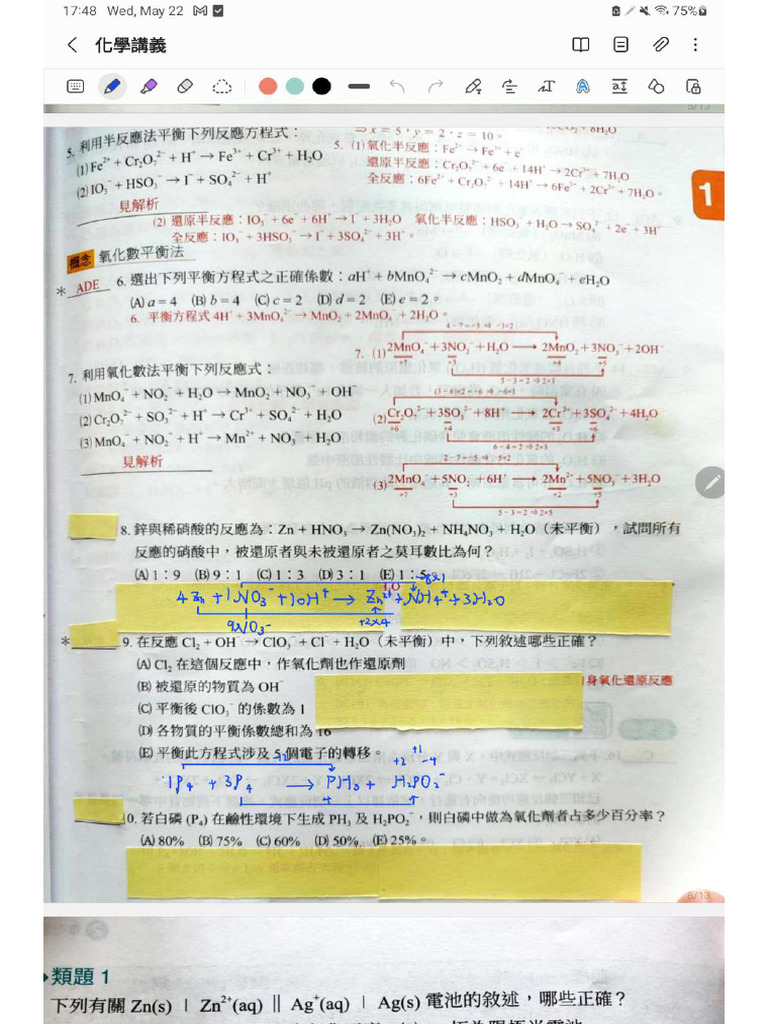 17:48 Wed, May 22
75%
化學講義
5/13
⇒ x = 5，y = 2，z = 10。
5. 利用半反應法平衡下列反應方程式：
(1) Fe²⁺ + Cr₂O₇²⁻ + H⁺ → Fe³⁺ + Cr³⁺ + H₂O
(2) IO₃⁻ + HSO₃⁻ → I⁻ + SO₄²⁻ + H⁺
見解析
5. (1) 氧化半反應：Fe²⁺ → Fe³⁺ + e⁻
還原半反應：Cr₂O₇²⁻ + 6e⁻ + 14H⁺ → 2Cr³⁺ + 7H₂O
全反應：6Fe²⁺ + Cr₂O₇²⁻ + 14H⁺ → 6Fe³⁺ + 2Cr³⁺ + 7H₂O。
1
(2) 還原半反應：IO₃⁻ + 6e⁻ + 6H⁺ → I⁻ + 3H₂O 氧化半反應：HSO₃⁻ + H₂O → SO₄²⁻ + 2e⁻ + 3H⁺
全反應：IO₃⁻ + 3HSO₃⁻ → I⁻ + 3SO₄²⁻ + 3H⁺。
概念 氧化數平衡法
* ADE 6. 選出下列平衡方程式之正確係數：aH⁺ + bMnO₄²⁻ → cMnO₂ + dMnO₄⁻ + eH₂O
(A) a = 4 (B) b = 4 (C) c = 2 (D) d = 2 (E) e = 2。
6. 平衡方程式 4H⁺ + 3MnO₄²⁻ → MnO₂ + 2MnO₄⁻ + 2H₂O。
7. 利用氧化數法平衡下列反應式：
(1) MnO₄⁻ + NO₂⁻ + H₂O → MnO₂ + NO₃⁻ + OH⁻
(2) Cr₂O₇²⁻ + SO₃²⁻ + H⁺ → Cr³⁺ + SO₄²⁻ + H₂O
(3) MnO₄⁻ + NO₂⁻ + H⁺ → Mn²⁺ + NO₃⁻ + H₂O
見解析
4－7＝－3 ⇒ －3×2
7. (1) 2MnO₄⁻ + 3NO₂⁻ + H₂O → 2MnO₂ + 3NO₃⁻ + 2OH⁻
5－3＝2 ⇒ 2×3
(3－6)×2＝－6 ⇒ －6×1
(2) Cr₂O₇²⁻ + 3SO₃²⁻ + 8H⁺ → 2Cr³⁺ + 3SO₄²⁻ + 4H₂O
+6 +4 +3 +6
6－4＝2 ⇒ 2×3
2－7＝－5 ⇒ －5×2
(3) 2MnO₄⁻ + 5NO₂⁻ + 6H⁺ → 2Mn²⁺ + 5NO₃⁻ + 3H₂O
+7 +3 +2 +5
5－3＝2 ⇒ 2×5
8. 鋅與稀硝酸的反應為：Zn + HNO₃ → Zn(NO₃)₂ + NH₄NO₃ + H₂O（未平衡），試問所有
反應的硝酸中，被還原者與未被還原者之莫耳數比為何？
(A) 1：9 (B) 9：1 (C) 1：3 (D) 3：1 (E) 1：
-8×1
4Zn + 1NO₃⁻ + 10H⁺ → Zn²⁺ + NH₄⁺ + 3H₂O
9NO₃⁻ +2×4
* 9. 在反應 Cl₂ + OH⁻ → ClO₃⁻ + Cl⁻ + H₂O（未平衡）中，下列敘述哪些正確？
(A) Cl₂ 在這個反應中，作氧化劑也作還原劑
(B) 被還原的物質為 OH⁻
身氧化還原反應
(C) 平衡後 ClO₃⁻ 的係數為 1
(D) 各物質的平衡係數總和為 16
(E) 平衡此方程式涉及 5 個電子的轉移。
-12 +2 +1 -4
1P₄ + 3P₄ → PH₃ + H₂PO₂⁻
10. 若白磷 (P₄) 在鹼性環境下生成 PH₃ 及 H₂PO₂⁻，則白磷中做為氧化劑者占多少百分率？
(A) 80% (B) 75% (C) 60% (D) 50% (E) 25%。
6/13
類題 1
下列有關 Zn(s) | Zn²⁺(aq) ‖ Ag⁺(aq) | Ag(s) 電池的敘述，哪些正確？